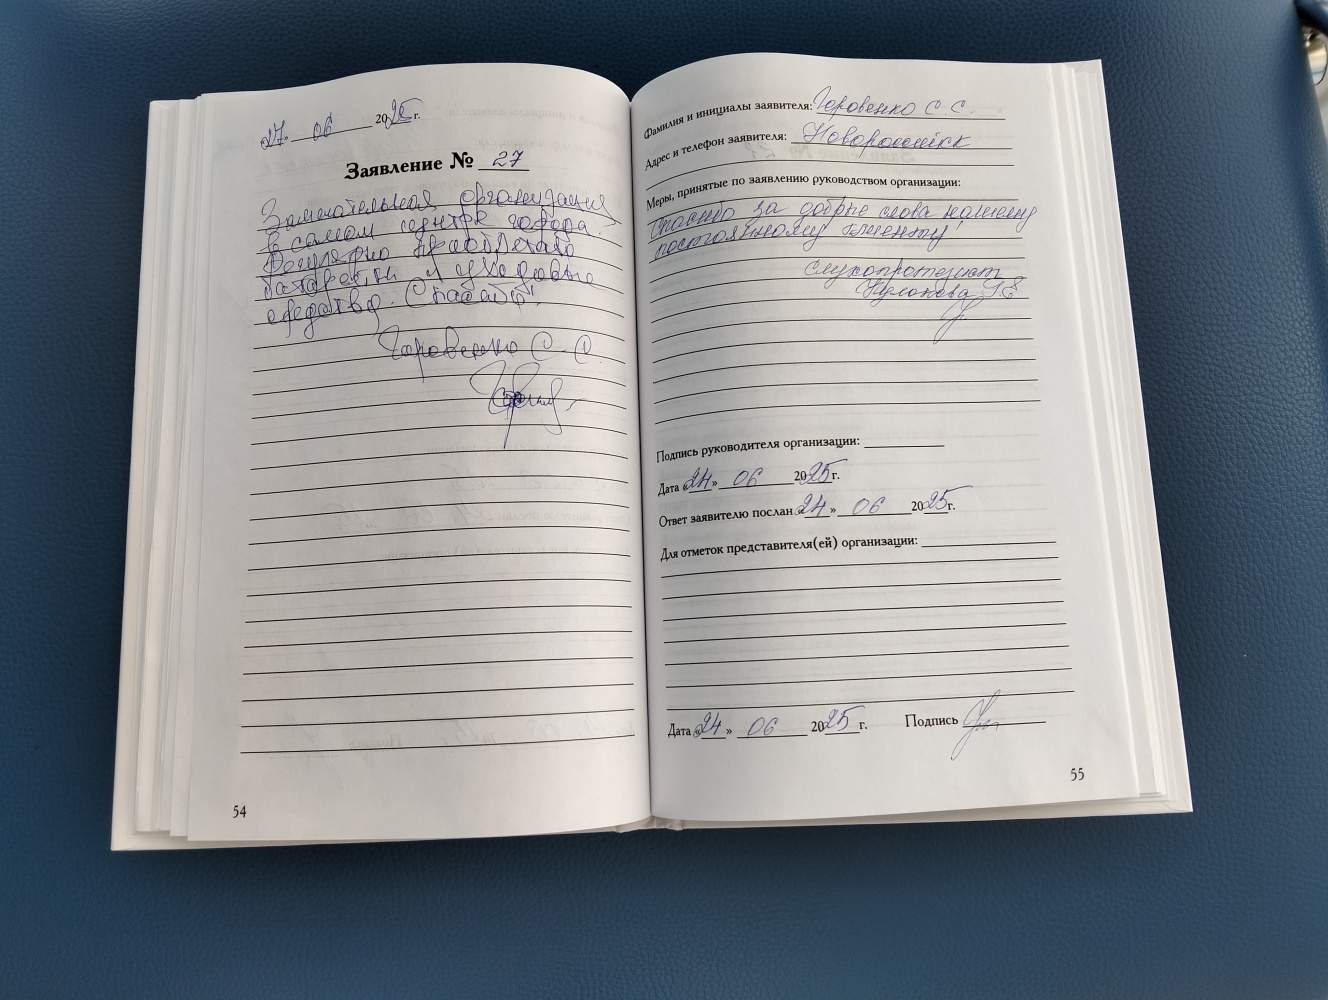 27. 06 2025 г.
Заявление № 27
Замечательная организация
в самом центре города.
Регулярно приобретаю
батарейки и уходовые
средства. Спасибо!
Горовенко С. С.
54
Фамилия и инициалы заявителя: Горовенко С. С.
Адрес и телефон заявителя: Новороссийск
Меры, принятые по заявлению руководством организации:
Спасибо за добрые слова нашему
постоянному клиенту!
Слухопротезист
Подпись руководителя организации:
Дата «24» 06 2025 г.
Ответ заявителю послан «24» 06 2025 г.
Для отметок представителя(ей) организации:
Дата «24» 06 2025 г. Подпись
55